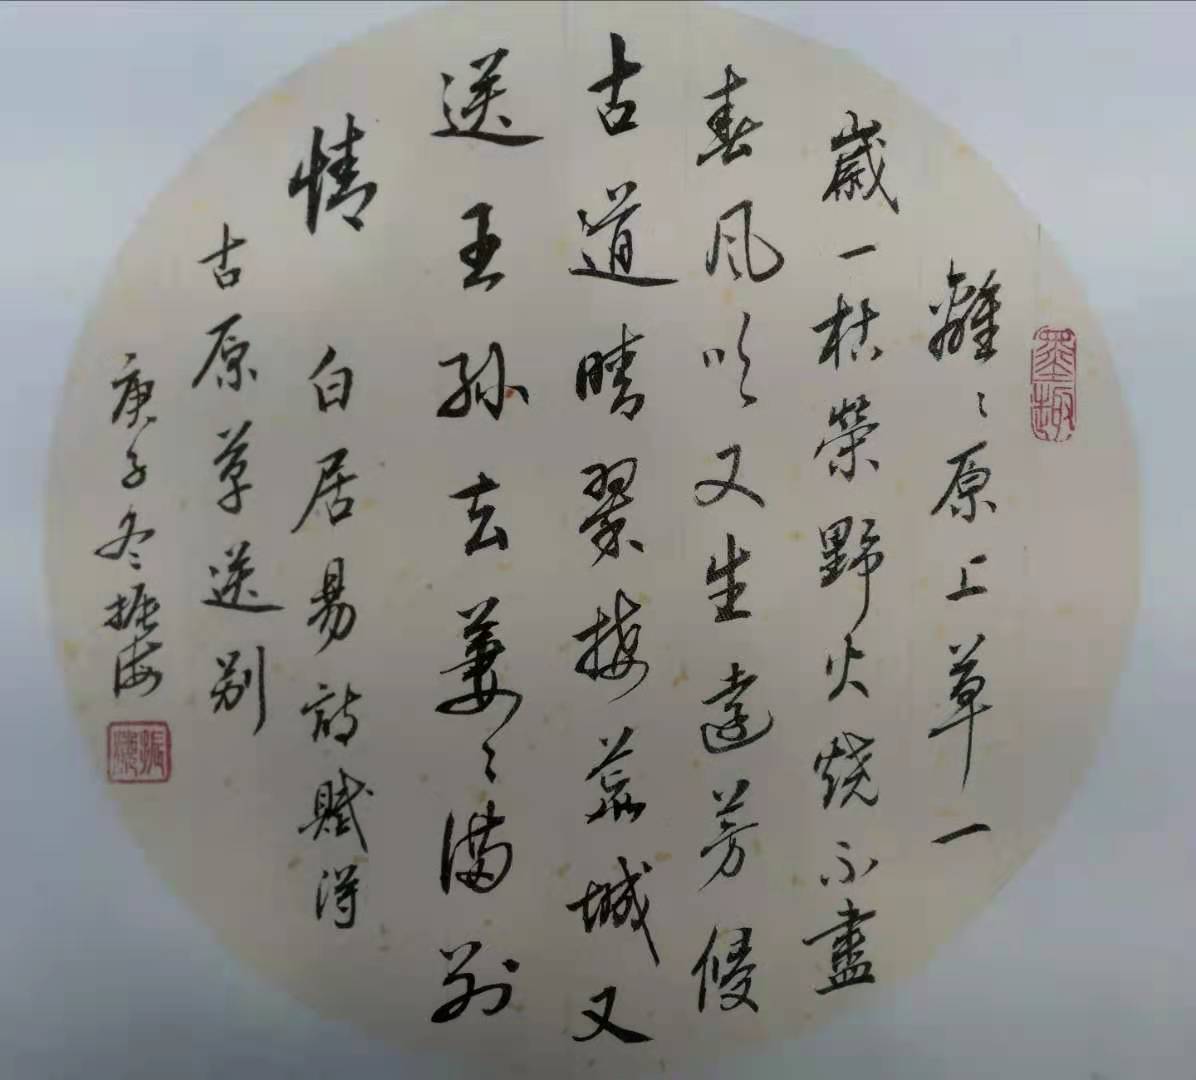 墨趣
離々原上草一
歲一枯榮野火燒不盡
春風吹又生遠芳侵
古道晴翠接荒城又
送王孫去萋々滿別
情 白居易詩賦得
古原草送别
庚子冬振海
振海